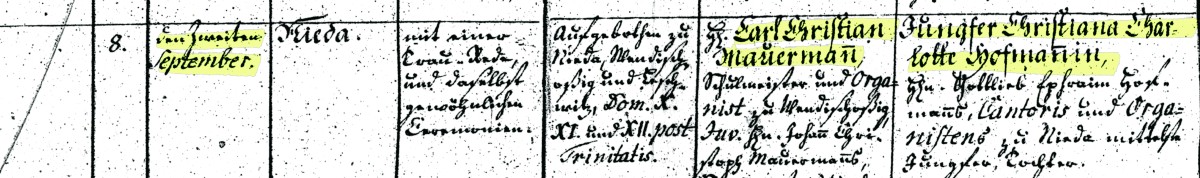 8.
den zweiten
September.
Nieda.
mit einer
Trau-Rede,
und daselbst
gewöhnlichen
Ceremonien.
Aufgebothen zu
Nieda, Wendisch-
oßig und
witz, Dom. X.
XI. und XII. post
Trinitatis.
H. Carl Christian
Mauermañ,
Schulmeister und Orga-
nist zu Wendischoßig,
Juv. Hn. Johañ Chri-
stoph Mauermañs,
Jungfer Christiana Char-
lotte Hofmañin,
Hn. Gottlieb Ephraim Hof-
mañs, Cantoris und Orga-
nistens zu Nieda mittelste
Jungfer Tochter.